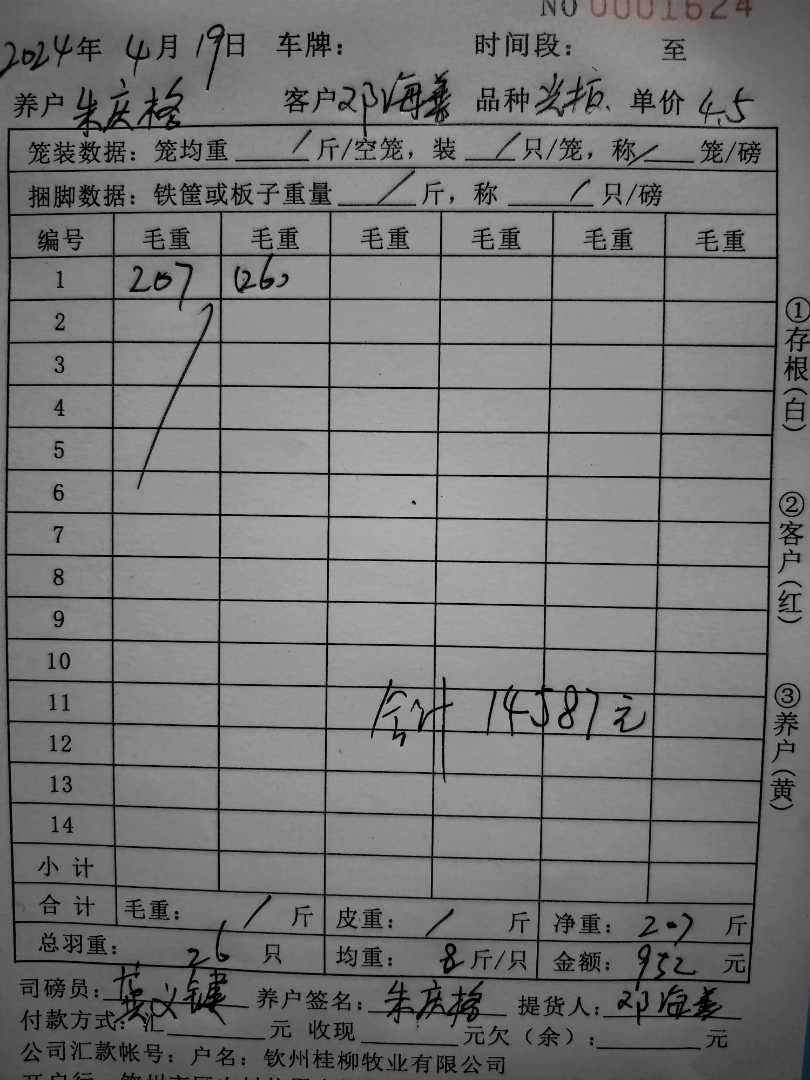 NO 0001624
2024年 4月 19日 车牌： 时间段： 至
养户 朱庆格 客户 邓海善 品种 单价 4.5
笼装数据：笼均重 / 斤/空笼，装 / 只/笼，称 / 笼/磅
捆脚数据：铁筐或板子重量 / 斤，称 / 只/磅
编号 毛重 毛重 毛重 毛重 毛重 毛重
1 207 (26)
2
3
4
5
6
7
8
9
10
11
合计 14587元
12
13
14
小计
合计 毛重： / 斤 皮重： / 斤 净重： 207 斤
总羽重： 26 只 均重： 8 斤/只 金额： 932 元
司磅员： 养户签名：朱庆格 提货人：邓海善
付款方式：汇 元 收现 元欠（余）： 元
公司汇款帐号：户名：钦州桂柳牧业有限公司
①存根（白）
②客户（红）
③养户（黄）